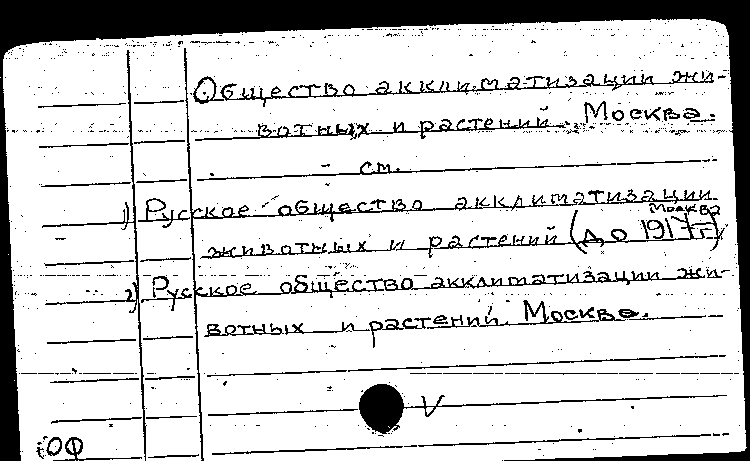 Общество акклиматизации жи-
вотных и растений. Москва.
- см.
1) Русское общество акклиматизации
Москва
животных и растений (до 1917 г.)
2) Русское общество акклиматизации жи-
вотных и растений. Москва.
V
ОФ